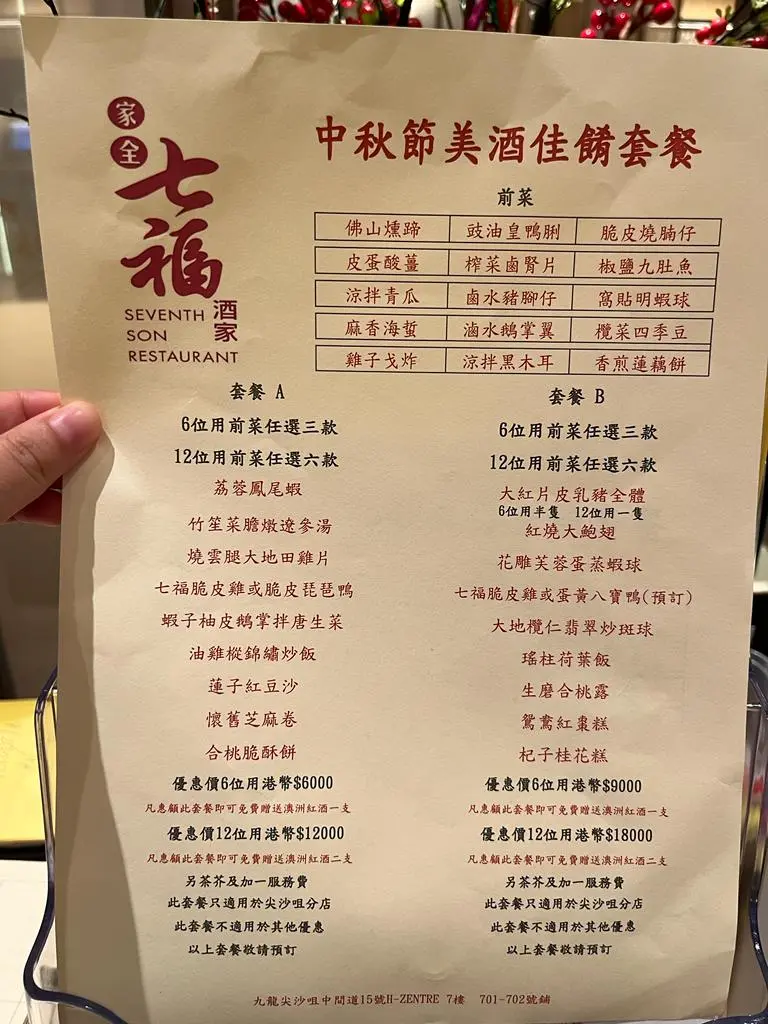 家全
七福
酒家
SEVENTH
SON
RESTAURANT
中秋節美酒佳餚套餐
前菜
佛山燻蹄 豉油皇鴨脷 脆皮燒腩仔
皮蛋酸薑 榨菜鹵腎片 椒鹽九肚魚
涼拌青瓜 鹵水豬腳仔 窩貼明蝦球
麻香海蜇 滷水鵝掌翼 欖菜四季豆
雞子戈炸 涼拌黑木耳 香煎蓮藕餅
套餐 A
6位用前菜任選三款
12位用前菜任選六款
荔蓉鳳尾蝦
竹笙菜膽燉遼參湯
燒雲腿大地田雞片
七福脆皮雞或脆皮琵琶鴨
蝦子柚皮鵝掌拌唐生菜
油雞樅錦繡炒飯
蓮子紅豆沙
懷舊芝麻卷
合桃脆酥餅
優惠價6位用港幣$6000
凡惠顧此套餐即可免費贈送澳洲紅酒一支
優惠價12位用港幣$12000
凡惠顧此套餐即可免費贈送澳洲紅酒二支
另茶芥及加一服務費
此套餐只適用於尖沙咀分店
此套餐不適用於其他優惠
以上套餐敬請預訂
套餐 B
6位用前菜任選三款
12位用前菜任選六款
大紅片皮乳豬全體
6位用半隻 12位用一隻
紅燒大鮑翅
花雕芙蓉蛋蒸蝦球
七福脆皮雞或蛋黃八寶鴨(預訂)
大地欖仁翡翠炒斑球
瑤柱荷葉飯
生磨合桃露
鴛鴦紅棗糕
杞子桂花糕
優惠價6位用港幣$9000
凡惠顧此套餐即可免費贈送澳洲紅酒一支
優惠價12位用港幣$18000
凡惠顧此套餐即可免費贈送澳洲紅酒二支
另茶芥及加一服務費
此套餐只適用於尖沙咀分店
此套餐不適用於其他優惠
以上套餐敬請預訂
九龍尖沙咀中間道15號H-ZENTRE 7樓 701-702號鋪